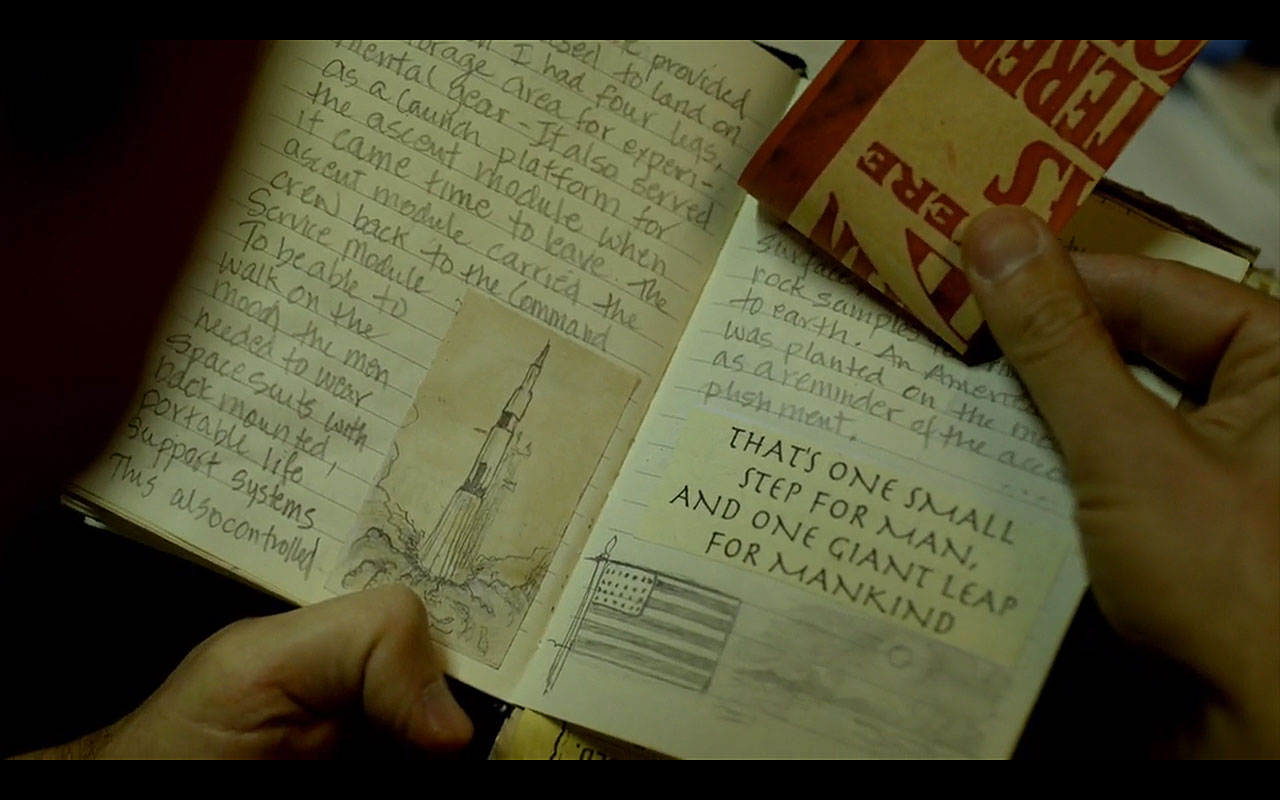 provided
used to land on
I had four legs,
storage area for experi-
mental gear - It also served
as a launch platform for
the ascent module when
it came time to leave. The
ascent module carried the
crew back to the Command
Service module
To be able to
walk on the
moon the men
needed to wear
space suits with
back mounted,
portable life
support systems
This also controlled
surface
rock samples
to earth. An America
was planted on the mo
as a reminder of the acco
plishment.
THAT'S ONE SMALL
STEP FOR MAN,
AND ONE GIANT LEAP
FOR MANKIND
IS
ERE